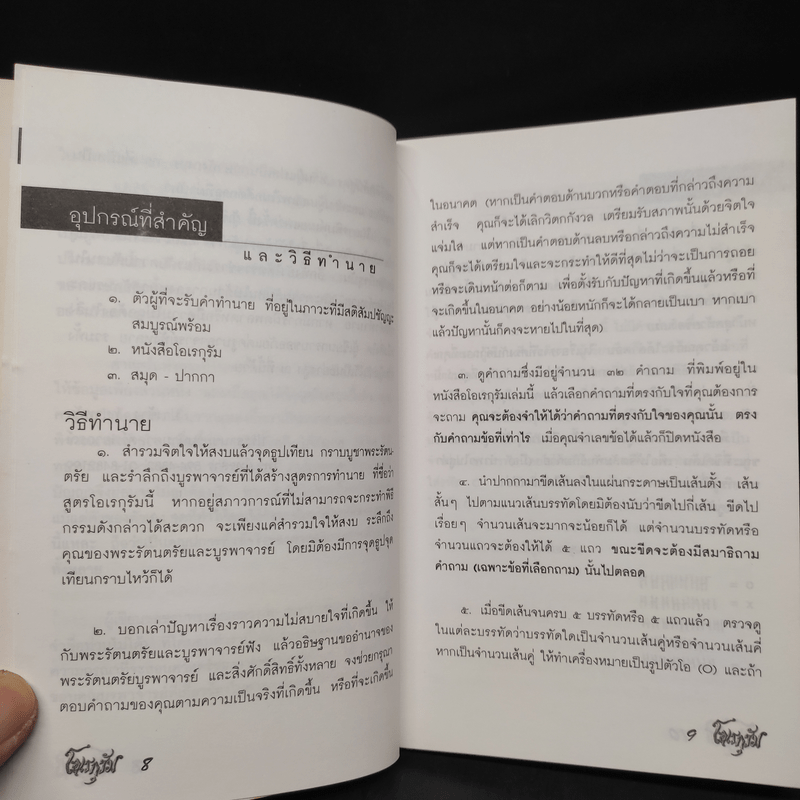 อุปกรณ์ที่สำคัญ
และวิธีทำนาย
๑. ตัวผู้ที่จะรับคำทำนาย ที่อยู่ในภาวะที่มีสติสัมปชัญญะ
สมบูรณ์พร้อม
๒. หนังสือโอเรกุรัม
๓. สมุด - ปากกา
วิธีทำนาย
๑. สำรวมจิตใจให้สงบแล้วจุดธูปเทียน กราบบูชาพระรัตน-
ตรัย และรำลึกถึงบูรพาจารย์ที่ได้สร้างสูตรการทำนาย ที่ชื่อว่า
สูตรโอเรกุรัมนี้ หากอยู่สภาวการณ์ที่ไม่สามารถจะกระทำพิธี
กรรมดังกล่าวได้สะดวก จะเพียงแค่สำรวมใจให้สงบ ระลึกถึง
คุณของพระรัตนตรัยและบูรพาจารย์ โดยมิต้องมีการจุดธูปจุด
เทียนกราบไหว้ก็ได้
๒. บอกเล่าปัญหาเรื่องราวความไม่สบายใจที่เกิดขึ้น ให้
กับพระรัตนตรัยและบูรพาจารย์ฟัง แล้วอธิษฐานขออำนาจของ
พระรัตนตรัยบูรพาจารย์ และสิ่งศักดิ์สิทธิ์ทั้งหลาย จงช่วยกรุณา
ตอบคำถามของคุณตามความเป็นจริงที่เกิดขึ้น หรือที่จะเกิดขึ้น
โอเรกุรัม 8
ในอนาคต (หากเป็นคำตอบด้านบวกหรือคำตอบที่กล่าวถึงความ
สำเร็จ คุณก็จะได้เลิกวิตกกังวล เตรียมรับสภาพนั้นด้วยจิตใจ
แจ่มใส แต่หากเป็นคำตอบด้านลบหรือกล่าวถึงความไม่สำเร็จ
คุณก็จะได้เตรียมใจและจะกระทำให้ดีที่สุดไม่ว่าจะเป็นการถอย
หรือจะเดินหน้าต่อก็ตาม เพื่อตั้งรับกับปัญหาที่เกิดขึ้นแล้วหรือที่
จะเกิดขึ้นในอนาคต อย่างน้อยหนักก็จะได้กลายเป็นเบา หากเบา
แล้วปัญหานั้นก็คงจะหายไปในที่สุด)
๓. ดูคำถามซึ่งมีอยู่จำนวน ๓๒ คำถาม ที่พิมพ์อยู่ใน
หนังสือโอเรกุรัมเล่มนี้ แล้วเลือกคำถามที่ตรงกับใจที่คุณต้องการ
จะถาม คุณจะต้องจำให้ได้ว่าคำถามที่ตรงกับใจของคุณนั้น ตรง
กับคำถามข้อที่เท่าไร เมื่อคุณจำเลขข้อได้แล้วก็ปิดหนังสือ
๔. นำปากกามาขีดเส้นลงในแผ่นกระดาษเป็นเส้นตั้ง เส้น
สั้นๆ ไปตามแนวเส้นบรรทัดโดยมิต้องนับว่าขีดไปกี่เส้น ขีดไป
เรื่อยๆ จำนวนเส้นจะมากจะน้อยก็ได้ แต่จำนวนบรรทัดหรือ
จำนวนแถวจะต้องให้ได้ ๕ แถว ขณะขีดจะต้องมีสมาธิถาม
คำถาม (เฉพาะข้อที่เลือกถาม) นั้นไปตลอด
๕. เมื่อขีดเส้นจนครบ ๕ บรรทัดหรือ ๕ แถวแล้ว ตรวจดู
ในแต่ละบรรทัดว่าบรรทัดใดเป็นจำนวนเส้นคู่หรือจำนวนเส้นคี่
หากเป็นจำนวนเส้นคู่ ให้ทำเครื่องหมายเป็นรูปตัวโอ (O) และถ้า
9 โอเรกุรัม